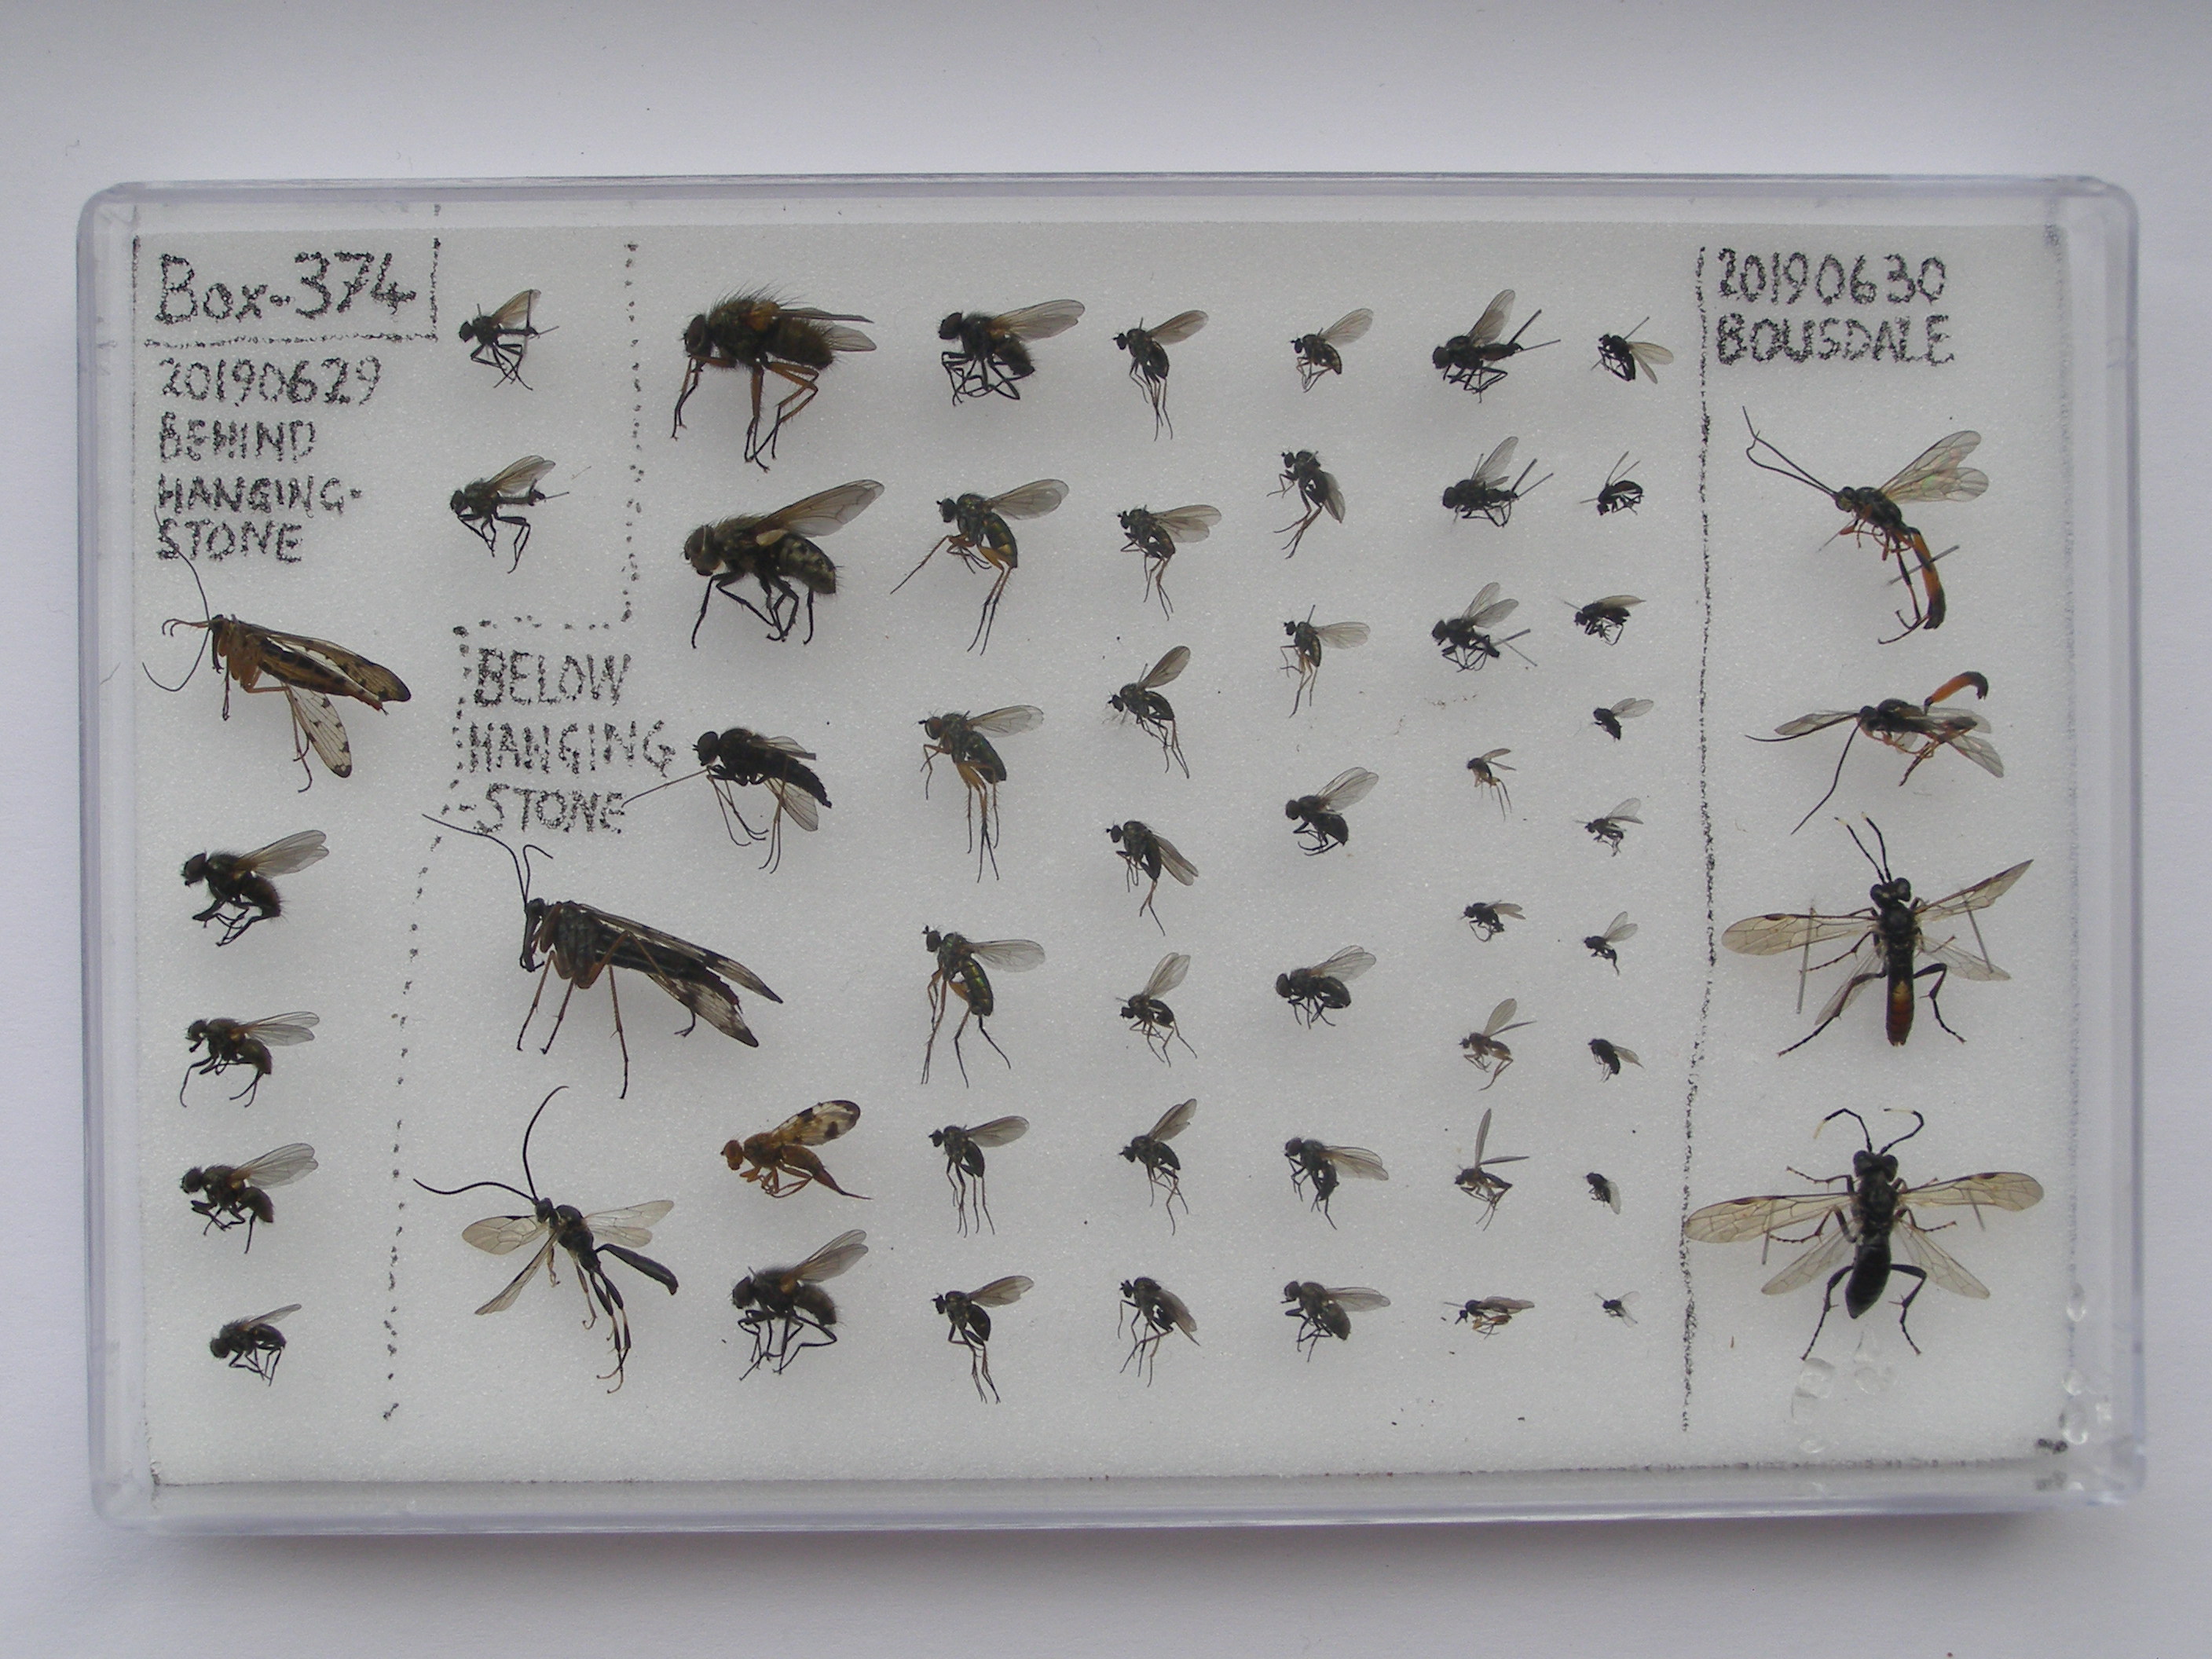 Box-374
20190629
BEHIND
HANGING-
STONE
BELOW
HANGING
-STONE
20190630
BOUSDALE